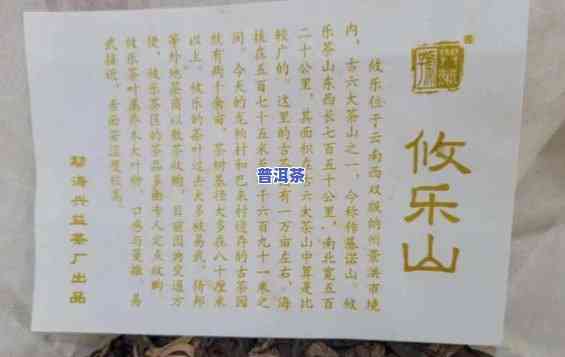 攸乐山
攸乐位于云南西双版纳州景洪市境
内，古六大茶山之一，今称作基诺山。攸
乐茶山东西长七百五十公里，南北宽五百
二十公里，其面积在古六大茶山中算是比
较广的。这里的古茶园有一万亩左右，海
拔在五百七十五米至一千六百九十一米之
间。今天的龙帕村和巴来村经存的古茶园
就有两千余亩，茶树基径大多在八十厘米
以上。攸乐的茶叶过去大多被易武、倚邦
等外地茶商以散茶收购，目前因为交通方
便，攸乐茶区的茶品多由专人定点收购，
攸乐茶叶属乔木大叶种，口感与蔓撒、易
武接近，香苦涩
勐海兴益茶厂出品
普洱茶